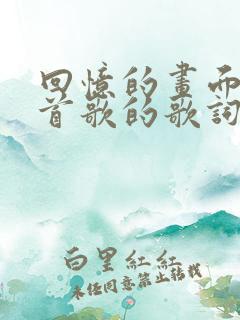 回憶的畫面
首歌的歌詞
白里紅紅
未經同意禁止轉載